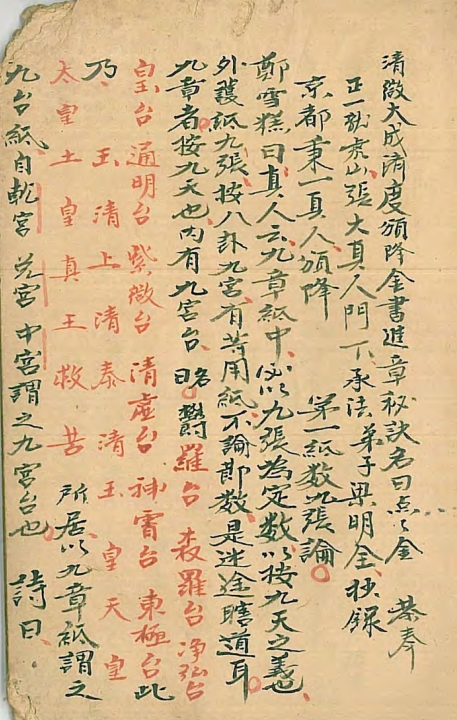 清微大成濟度頒降金書進章秘訣名曰点点金 恭奉
正一龍虎山張大真人門下承法弟子梁明全抄録
京都秉一真人頒降 第一紙数九張論
鄭雪糕曰真人云九章紙中必以九張為定数以按九天之義也
外護紙九張按八卦九宮有等用紙不論郎数是迷途瞎道耳
九章者按九天也内有九宮台略 欝羅台 森羅台 浄弘台
皇台通明台紫微台清虚台神霄台東極台此
乃玉清上清泰清玉皇天皇
太皇土皇真王救苦所居以九章紙謂之
九台紙自乾宮兌宮中宮謂之九宮台也 詩曰